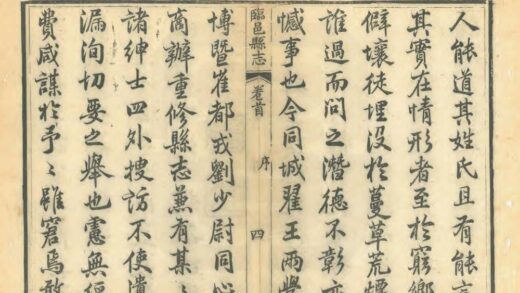 人能道其姓氏且有能言
其實在情形者至於窮鄉
僻壤徒埋没於蔓草荒煙
誰過而問之潛德不彰亦
憾事也今同城翟王兩學
臨邑縣志 卷首 序 四
博暨崔都戎劉少尉同心
商辦重修縣志兼有某某
諸紳士四外搜訪不使遺
漏洵切要之舉也憲無經
費咸謀於予予雖窘焉敢